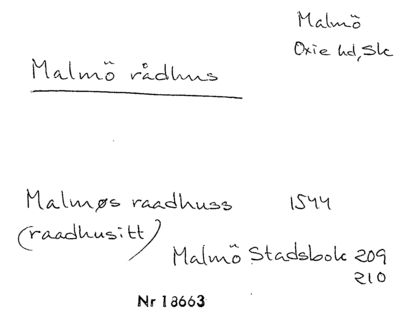 Malmö
Oxie hd, Sk
Malmö rådhus
Malmøs raadhuss 1544
(raadhusitt)
Malmö Stadsbok 209
210
Nr 18663